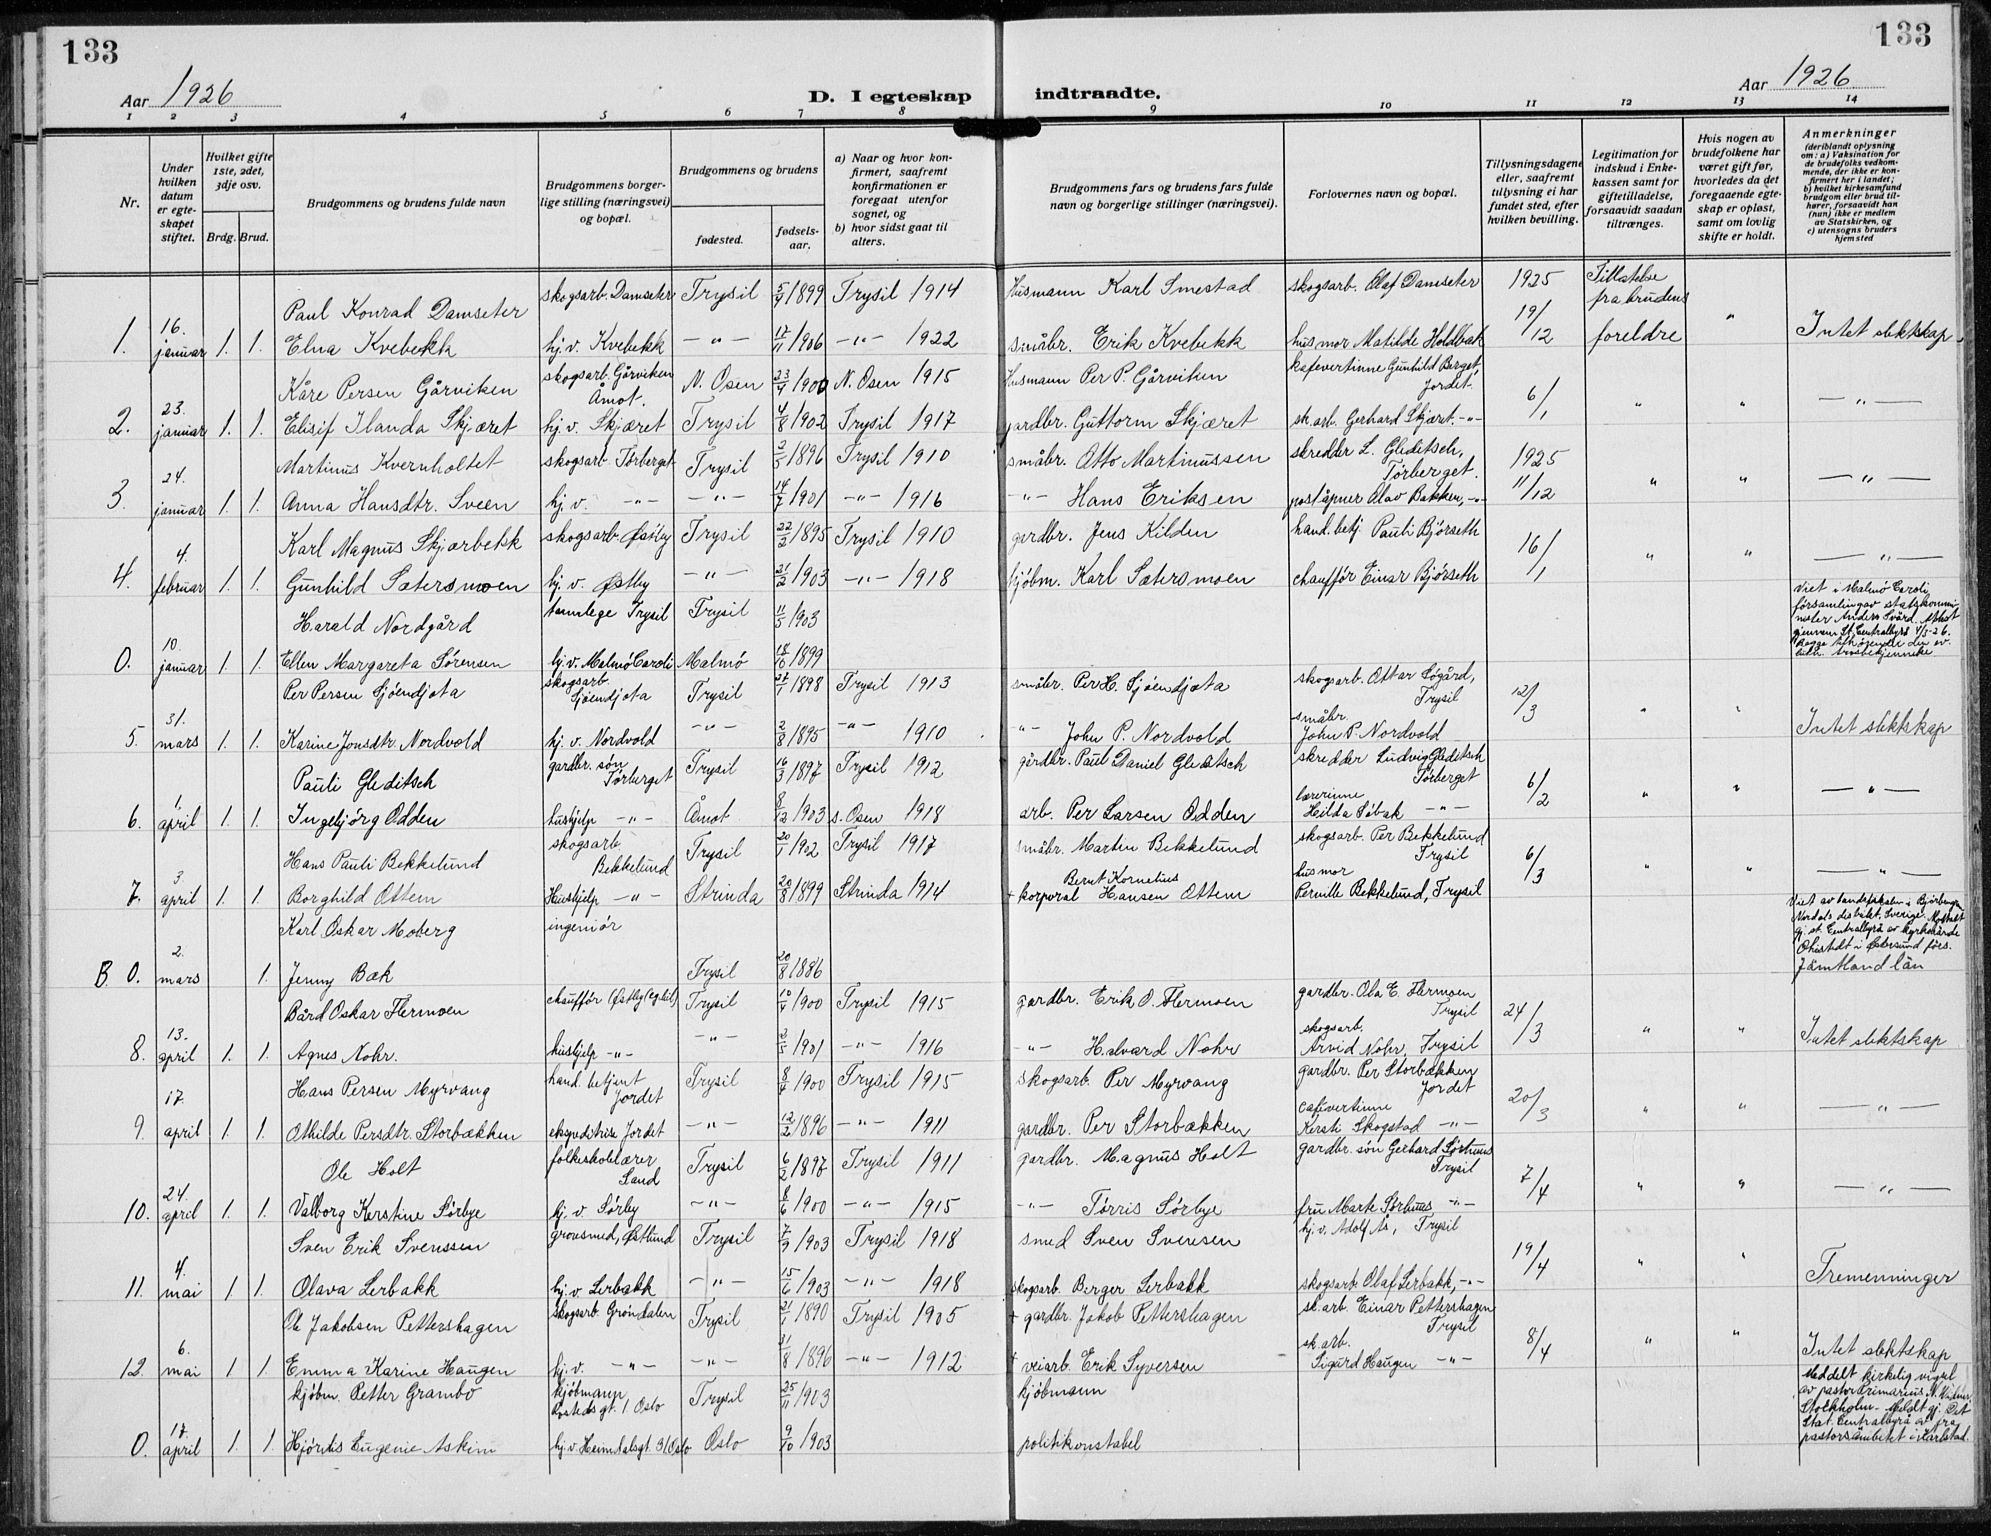 133
133
Aar 1926
D. I egteskap indtraadte.
Aar 1926
1 2 3 4 5 6 7 8 9 10 11 12 13 14
Nr.
Under hvilken datum er egteskapet stiftet.
Hvilket gifte 1ste, 2det, 3dje osv.
Brdg. Brud.
Brudgommens og brudens fulde navn
Brudgommens borgerlige stilling (næringsvei) og bopæl.
Brudgommens og brudens
fødested.
fødselsaar.
a) Naar og hvor konfirmert, saafremt konfirmationen er foregaat utenfor sognet, og
b) hvor sidst gaat til alters.
Brudgommens fars og brudens fars fulde navn og borgerlige stillinger (næringsvei).
Forlovernes navn og bopæl.
Tillysningsdagene eller, saafremt tillysning ei har fundet sted, efter hvilken bevilling.
Legitimation for indskud i Enkekassen samt for giftetilladelse, forsaavidt saadan tiltrænges.
Hvis nogen av brudefolkene har været gift før, hvorledes da det foregaaende egteskap er opløst, samt om lovlig skifte er holdt.
Anmerkninger (deriblandt oplysning om: a) Vaksination for de brudefolks vedkommende, der ikke er konfirmert her i landet; b) hvilket kirkesamfund brudgom eller brud tilhører, forsaavidt han (hun) ikke er medlem av Statskirken, og c) utensogns bruders hjemsted
Paul Konrad Damseter skogsarb. Damseter Trysil 5/4 1899 Trysil 1914 Husmann Karl Smestad skogsarb. Olaf Damseter 1925 Tillatelse fra brudens
1. 16. januar 1. 1. Elna Kvebekk hj. v. Kvebekk —"— 17/11 1906 —"— 1922 småbr. Erik Kvebekk husmor Matilde Holdbak 19/12 foreldre " Intet slektskap
Kåre Persen Gårviken skogsarb. Gårviken Åmot. N. Osen 23/4 1900 N. Osen 1915 Husmann Per P. Gårviken kafevertinne Gunhild Berget, Jordet.
2. 23. januar 1. 1. Elisif Ilanda Skjæret hj. v. Skjæret Trysil 4/8 1902 Trysil 1917 gardbr. Guttorm Skjæret sk.arb. Gerhard Skjæret —"— 6/1 " " —"—
Martinus Kvernholtet skogsarb. Tørberget Trysil 2/5 1896 Trysil 1910 småbr. Otto Martinussen skredder L. Gleditsch, Tørberget. 1925
3. 24. januar 1. 1. Anna Hansdtr. Sveen hj. v. —"— —"— 14/7 1901 —"— 1916 —"— Hans Eriksen poståpner Olav Bakken, —"— 11/12 " " —"—
Karl Magnus Skjærbekk skogsarb. Østby Trysil 22/2 1895 Trysil 1910 gardbr. Jens Kilden hand.betj. Pauli Bjørseth
4. 4. februar 1. 1. Gunhild Sætersmoen hj. v. Østby —"— 21/2 1903 —"— 1918 kjøbm. Karl Sætersmoen chauffør Einar Bjørseth 16/1 " " —"—
Harald Nordgård tannlege Trysil Trysil 11/5 1903
0. 10. januar 1. 1. Ellen Margareta Sørensen hj. v. Malmö Caroli Malmö 18/10 1899 Viet i Malmö Caroli församling av
Per Persen Sjøendjota skogsarb. Sjøendjota Trysil 27/1 1898 Trysil 1913 småbr. Per H. Sjøendjota skogsarb. Ottar Søgård, Trysil
5. 31. mars 1. 1. Karine Jonsdtr. Nordvold hj. v. Nordvold —"— 2/8 1895 —"— 1910 —"— John P. Nordvold småbr. John P. Nordvold 12/3 " " Intet slektskap
Pauli Gleditsch gardbr. søn Tørberget Trysil 16/3 1897 Trysil 1912 gårdbr. Paul Daniel Gleditsch skredder Ludvig Gleditsch Tørberget
6. 1 april 1. 1. Ingebjørg Odden hushjelp —"— Åmot 8/12 1903 s. Osen 1918 arb. Per Larsen Odden lærerinne Hilda Søbak —"— 6/2 " " —"—
Hans Pauli Bekkelund skogsarb. Bekkelund Trysil 20/1 1902 Trysil 1917 småbr. Martin Bekkelund skogsarb. Per Bekkelund Trysil
7. 3 april 1. 1. Borghild Ottem Hushjelp —"— Strinda 20/8 1899 Strinda 1914 + korporal Bernt Kornelius Hansen Ottem husmor Pernille Bekkelund, Trysil 6/3 " " —"—
Karl Oskar Moberg ingeniør
B. 0. 2. mars 1. Jenny Bæk Trysil 20/8 1886 Jämtland län
Bård Oskar Flermoen chauffør Østby Trysil 10/4 1900 Trysil 1915 gardbr. Erik O. Flermoen gardbr. Ola E. Flermoen Trysil
8. 13. april 1. 1. Agnes Nohr. hushjelp —"— —"— 2/5 1901 —"— 1916 —"— Halvard Nohr skogsarb. Arvid Nohr, Trysil 24/3 " " Intet slektskap
Hans Persen Myrvang hand. betjent Jordet Trysil 8/4 1900 Trysil 1915 skogsarb. Per Myrvang gardbr. Per Storbækken Jordet
9. 17. april 1. 1. Othilde Persdtr. Storbækken ekspeditrise Jordet —"— 12/2 1896 —"— 1911 gardbr. Per Storbækken cafevertinne Kersti Skogstad —"— 20/3 " " —"—
Ole Holt folkeskolelærer Sand Trysil 6/2 1897 Trysil 1911 gardbr. Magnus Holt gardbr. søn Gerhard Sørhuus Trysil
10. 24. april 1. 1. Valborg Kerstine Sørbye hj. v. Sørby —"— 8/6 1900 —"— 1915 —"— Tørris Sørbye fru Marte Sørhuus —"— 7/4 " " —"—
Sven Erik Svenssen grovsmed, Østlund Trysil 7/9 1903 Trysil 1918 smed Sven Svensen hj. v. Adolf Ås, Trysil
11. 4. mai 1 1. Olava Lerbakk hj. v. Lerbakk —"— 15/6 1903 —"— 1918 skogsarb. Berger Lerbakk skogsarb. Olaf Lerbakk, —"— 19/4 " " Tremenninger
Ole Jakobsen Pettershagen skogsarb. Grøndalen Trysil 21/1 1890 Trysil 1905 + gardbr. Jakob Pettershagen sk.arb. Einar Pettershagen Trysil
12. 6. mai 1 1. Emma Karine Haugen hj. v. —"— —"— 31/8 1896 —"— 1912 + veiarb. Erik Syversen sk.arb. Sigurd Haugen —"— 8/4 " " Intet slektskap
kjøbm. Petter Grambo kjøbmann gt. 1. Oslo Trysil 25/11 1903 kjøbmann Meddelt kirkelig vigsel av pastor Primarius
0. 17. april 1. 1. Hjørdis Eugenie Askim hj. v. Heimdalsgt. 31 Oslo Oslo 9/10 1903 politikonstabel Stockholm. Meldt gj. Det Stat. Centralbyrå fra pastorsämbetet i Karlstad.